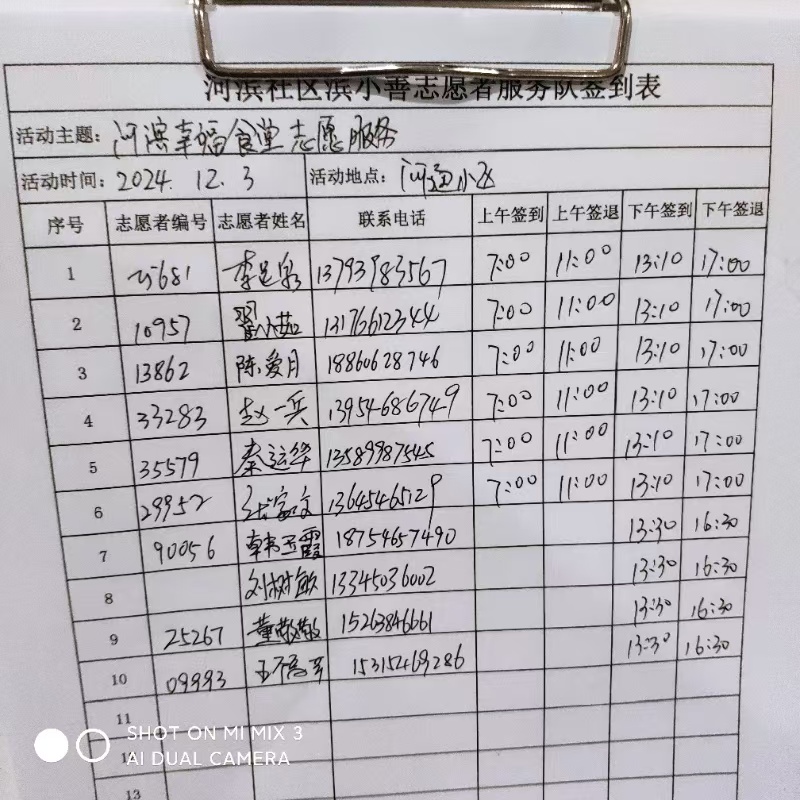 河滨社区滨小善志愿者服务队签到表
活动主题: 河滨幸福食堂志愿服务
活动时间: 2024. 12. 3 活动地点: 河道小区
序号 志愿者编号 志愿者姓名 联系电话 上午签到 上午签退 下午签到 下午签退
1 681 李 泉 13793983567 7:00 11:00 13:10 17:00
2 10957 翟小茹 13176612344 7:00 11:00 13:10 17:00
3 13862 陈爱月 18860628746 7:00 11:00 13:10 17:00
4 33283 赵一兵 13954686749 7:00 11:00 13:10 17:00
5 35579 秦运华 13589987545 7:00 11:00 13:10 17:00
6 29952 张富文 13645465129 7:00 11:00 13:10 17:00
7 90056 韩玉霞 18754657490 13:30 16:30
8 刘树敏 13345036002 13:30 16:30
9 25267 董敬敬 15263846661 13:30 16:30
10 09993 王 15315469286 13:30 16:30
11
12
13
SHOT ON MI MIX 3
AI DUAL CAMERA